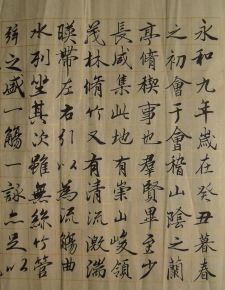 永和九年歲在癸丑暮春
之初會于會稽山陰之蘭
亭脩稧事也羣賢畢至少
長咸集此地有崇山峻領
茂林脩竹又有清流激湍
暎帶左右引以為流觴曲
水列坐其次雖無絲竹管
弦之盛一觴一詠亦足以